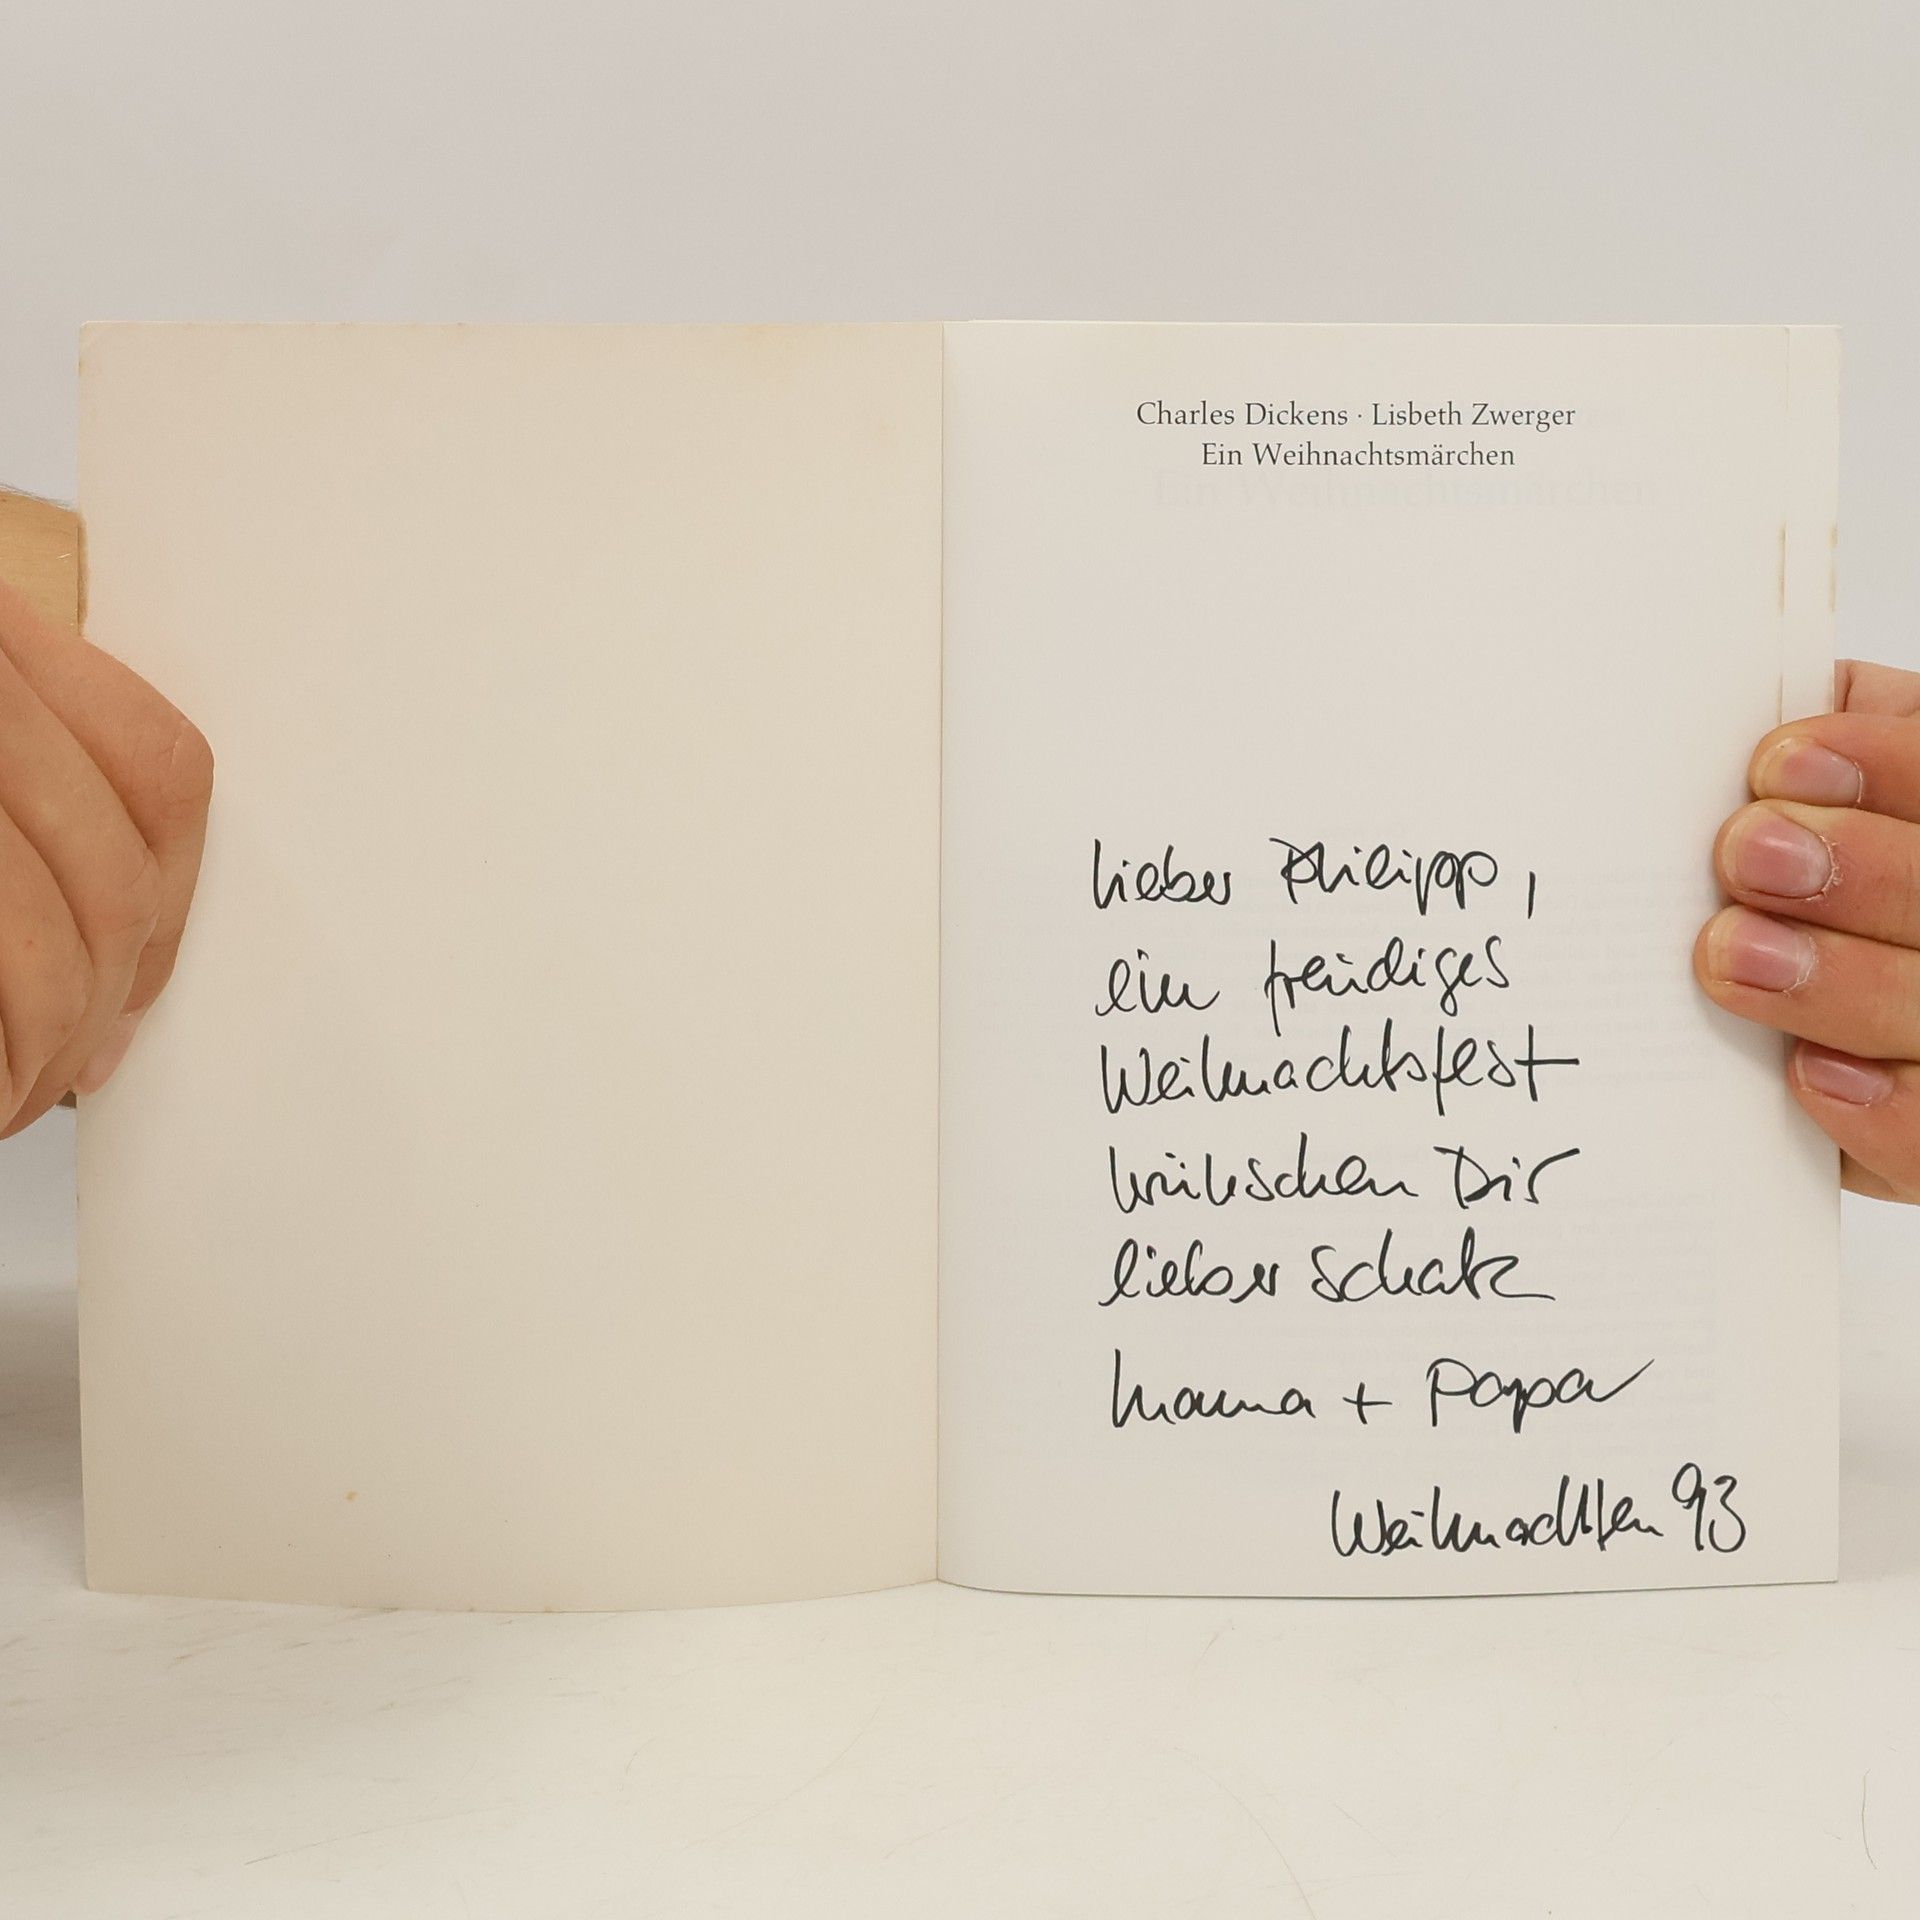 Charles Dickens · Lisbeth Zwerger
Ein Weihnachtsmärchen
lieber Philipp,
ein freudiges
Weihnachtsfest
wünschen Dir
lieber Schatz
Mama + Papa
Weihnachten 93